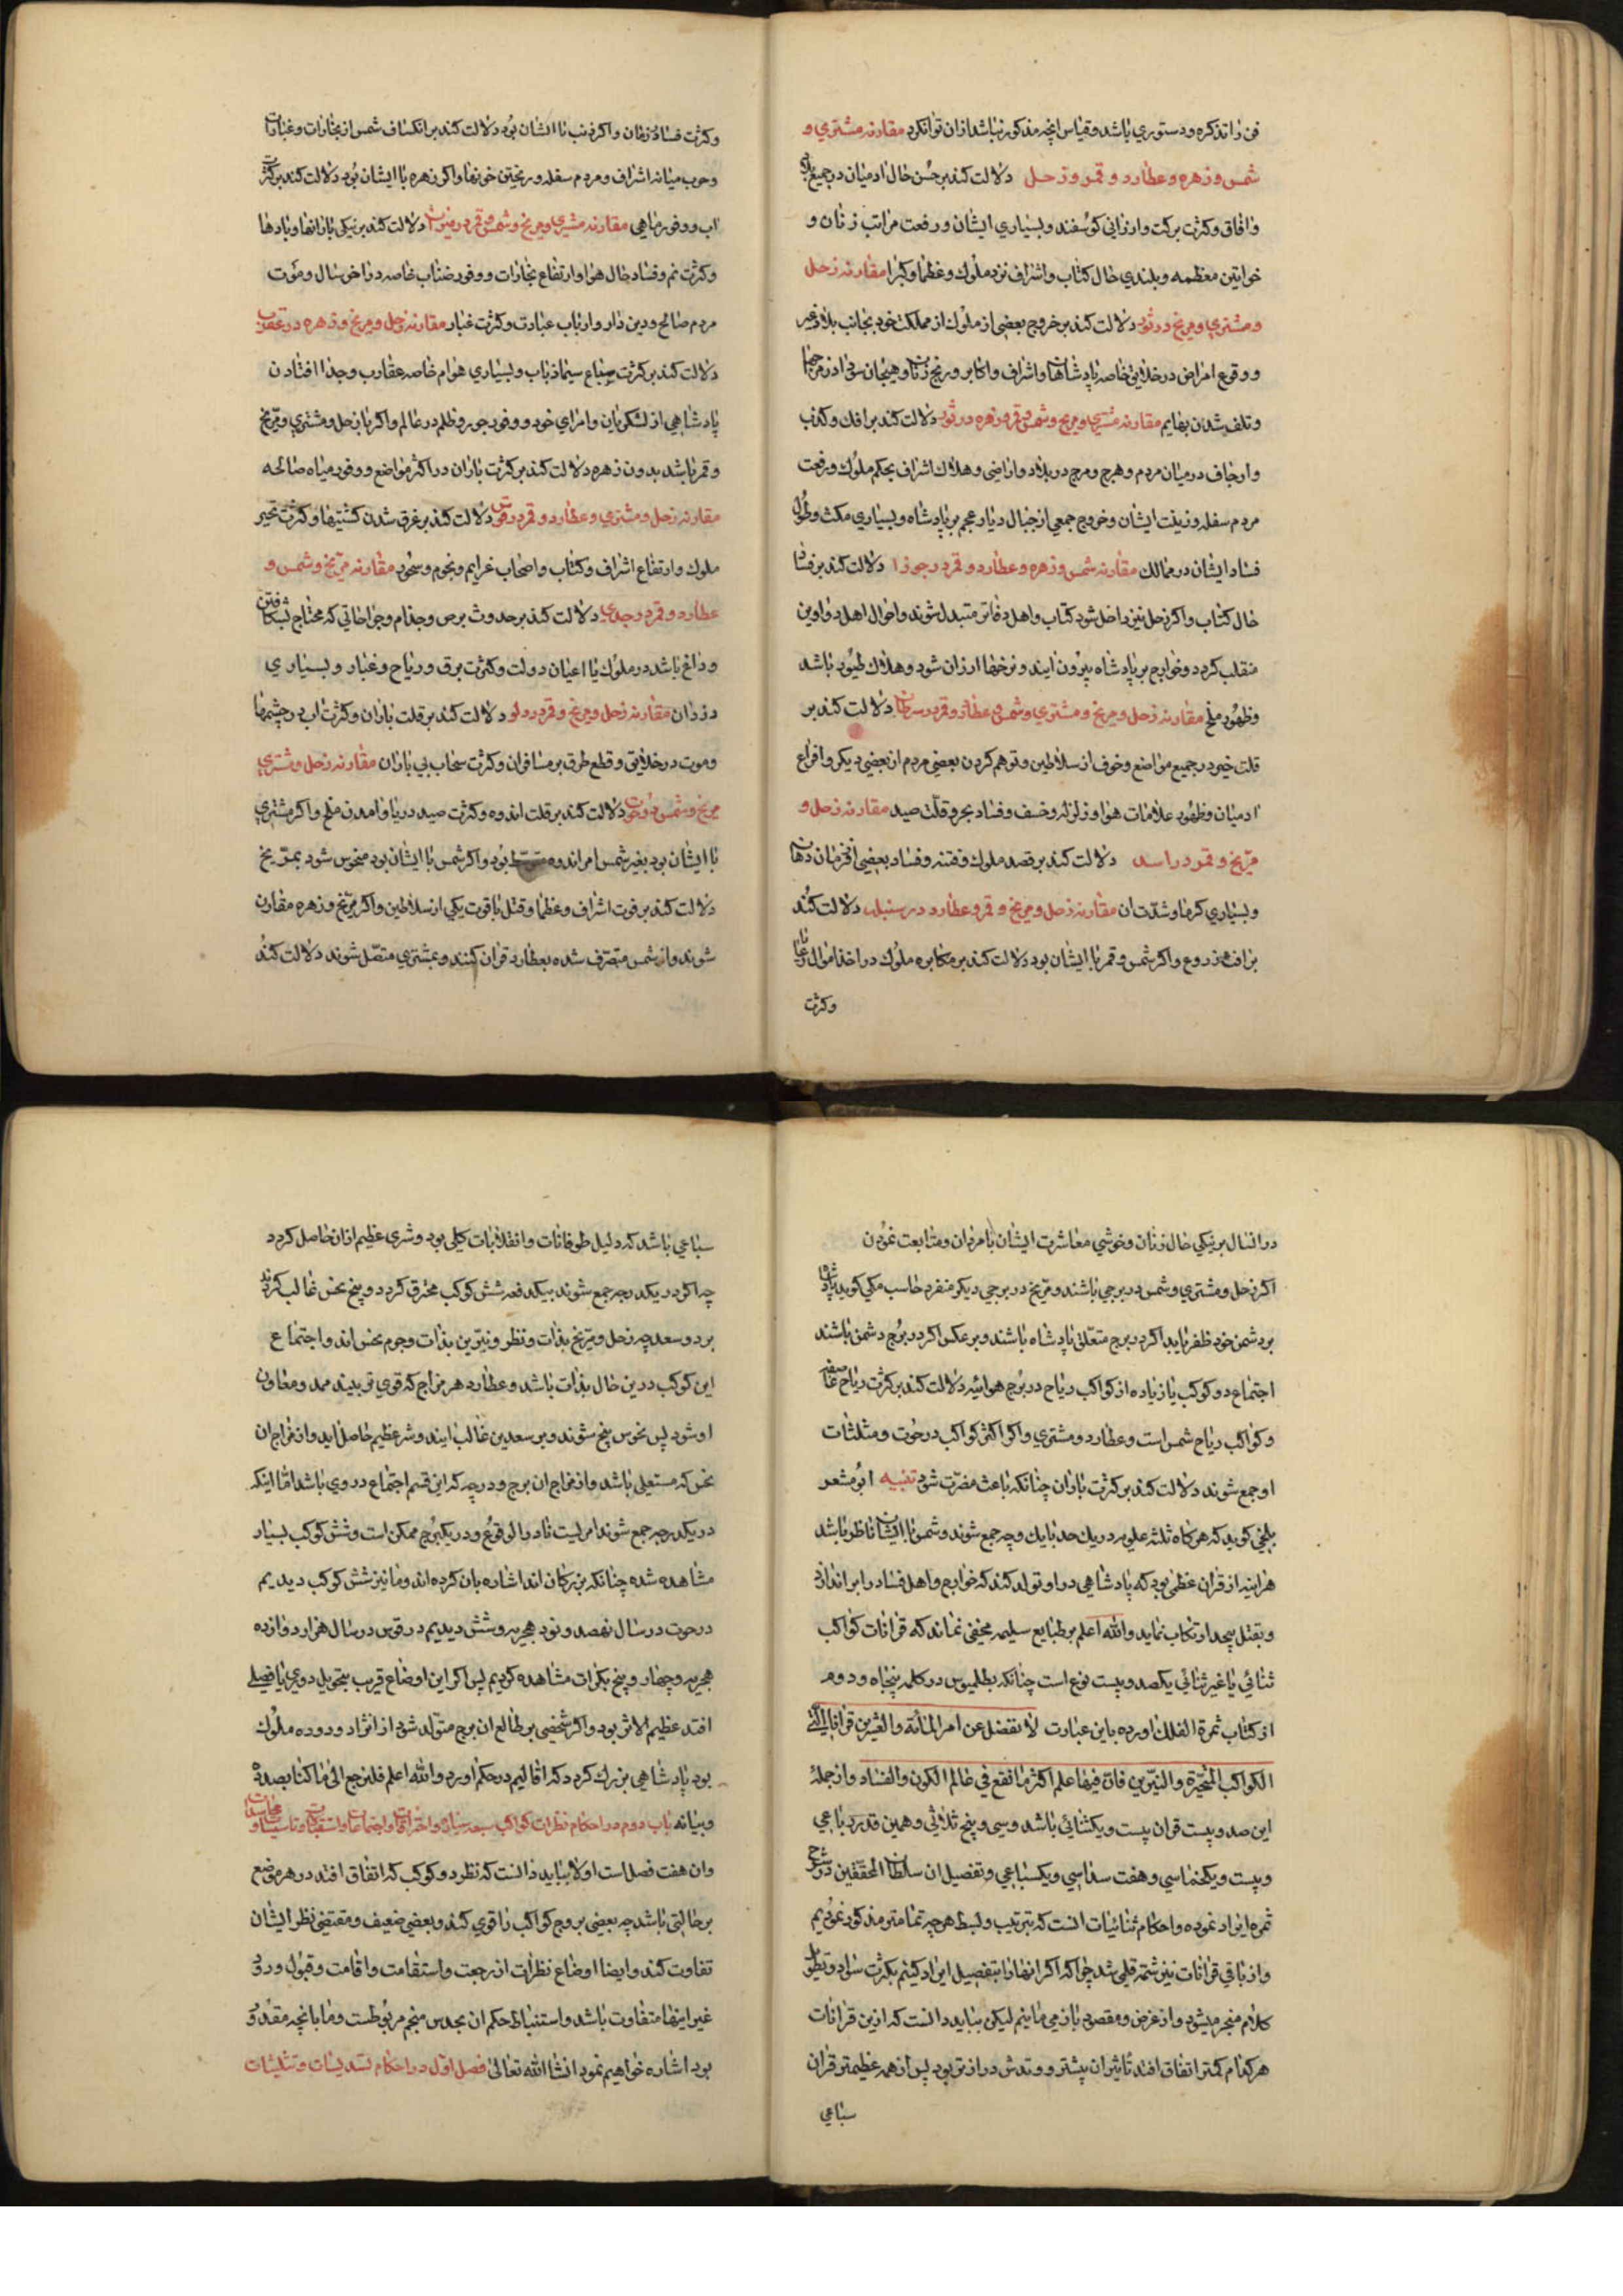 فن را تذکره و دستوری باشد و قیاس انچه مذکور نباشد ازان توانکرد مقارنه مشتری و
شمس و زهره و عطارد و قمر و زحل دلالت کند بر حسن حال ادمیان در جمیع
و افاق و کثرت برکت و ارزانی کوسفند و بسیاری ایشان و رفعت مراتب زنان و
خواتین معظمه و بلندی حال کتاب و اشراف نزد ملوک و عظما و کبرا مقارنه زحل
و مشتری و مریخ در ثور دلالت کند بر خروج بعضی از ملوک از مملکت خود بجانب بلاد غیر
و وقوع امراض در خلایق خاصه پادشاهان و اشراف و اکابر و رنج زنان و هیجان
و تلف شدن بهایم مقارنه مشتری و مریخ و شمس و قمر و زهره در ثور دلالت کند بر افک و کذب
و ارجاف در میان مردم و هرج و مرج در بلاد و اراضی و هلاک اشراف بحکم ملوک و رفعت
مردم سفله و زینت ایشان و خروج جمعی از جبال دیار عجم بر پادشاه و بسیاری مکث و طول
فساد ایشان در ممالک مقارنه شمس و زهره و عطارد و قمر در جوزا دلالت کند بر فساد
حال کتاب و اکر زحل نیز داخل شود کتاب و اهل دفاتر متبدل شوند و احوال اهل دواوین
منقلب کردد و خوارج بر پادشاه بیرون ایند و نرخها ارزان شود و هلاک طیور باشد
و ظهور ملخ مقارنه زحل و مریخ و مشتری و شمس و عطارد و قمر در سرطان دلالت کند بر
قلت خیر در جمیع مواضع و خوف از سلاطین و توهم کردن بعضی مردم از بعضی دیکر و افزاع
ادمیان و ظهور علامات هوا و زلزله و خسف و فساد بحر و قلت صید مقارنه زحل و
مریخ و قمر در اسد دلالت کند بر قصد ملوک و فتنه و فساد بعضی از
و بسیاری کرما و شدت ان مقارنه زحل و مریخ و قمر و عطارد در سنبله دلالت کند
بر افت زروع و اکر شمس و قمر با ایشان بود دلالت کند بر مکابره ملوک در اخذ اموال رعایا
و کثرت
و کثرت فساد زمان و اکر ذنب با ایشان بود دلالت کند بر انکساف شمس از بخارات و غبارات
و حرب میانه اشراف و مردم سفله و ریختن خونها و اکر زهره با ایشان بود دلالت کند بر کثرت
اب و وفور ماهی مقارنه مشتری و مریخ و شمس و قمر در میزان دلالت کند بر نیکی بارانها و بادها
و کثرت نم و فساد حال هوا و ارتفاع بخارات و وفور ضباب خاصه در اخر سال و موت
مردم صالح و دین دار و ارباب عبادت و کثرت غبار مقارنه زحل و مریخ و زهره در عقرب
دلالت کند بر کثرت سباع سیما ذیاب و بسیاری هوام خاصه عقارب و جدا افتادن
پادشاهی از لشکریان و امرای خود و وفور جور و ظلم در عالم و اکر با زحل و مشتری و مریخ
و قمر باشد بدون زهره دلالت کند بر کثرت باران در اکثر مواضع و وفور میاه صالحه
مقارنه زحل و مشتری و عطارد و قمر در قوس دلالت کند بر غرق شدن کشتیها و کثرت تحیر
ملوک و ارتفاع اشراف و کتاب و اصحاب عزایم و نجوم و سحور مقارنه مریخ و شمس و
عطارد و قمر در جدی دلالت کند بر حدوث برص و جذام و جراحاتی که محتاج بشکافتن
و داغ باشد در ملوک یا اعیان دولت و کثرت برق و ریاح و غبار و بسیاری
دزدان مقارنه زحل و مریخ و قمر در دلو دلالت کند بر قلت باران و کثرت اب در چشمها
و موت در خلایق و قطع طرق بر مسافران و کثرت سحاب بی باران مقارنه زحل و مشتری
مریخ و شمس در حوت دلالت کند بر قلت اندوه و کثرت صید دریا و امدن ملخ و اکر مشتری
با ایشان بود بغیر شمس امر اندوه متوسط بود و اکر شمس با ایشان بود منحوس شود بمریخ
دلالت کند بر فوت اشراف و عظما و قتل با قوت یکی از سلاطین و اکر مریخ و زهره مقارن
شوند و از شمس منصرف شده بعطارد قران کنند و بمشتری متصل شوند دلالت کند
در انسال بر نیکی حال زنان و خوشی معاشرت ایشان با مردان و متابعت نمودن
اکر زحل و مشتری و شمس در برجی باشند و مریخ در برجی دیکر منفرد حاسب مکی کوید پادشاه
بر دشمن خود ظفر یابد اکر در برج متعلق پادشاه باشند و بر عکس اکر در برج دشمن باشند
اجتماع دو کوکب یا زیاده از کواکب ریاح در بروج هوائیه دلالت کند بر کثرت ریاح
و کواکب ریاح شمس است و عطارد و مشتری و اکر اکثر کواکب در حوت و مثلثات
او جمع شوند دلالت کند بر کثرت باران چنانکه باعث مضرت شود تنبیه ابو معشر
بلخی کوید که هرکاه ثلثه علویه در یک حد یا یک وجه جمع شوند و شمس با ایشان ناظر باشد
هر اینه از قران عظمی بود که پادشاهی در او تولد کند که خوارج و اهل فساد را بر اندازد
و بقتل بیحد ارتکاب نماید والله اعلم بر طبایع سلیمه مخفی نماند که قرانات کواکب
ثنائی یا غیر ثنائی یکصد و بیست نوع است چنانکه بطلمیوس در کلمه پنجاه و دوم
از کتاب ثمرة الفلک اورده باین عبارت لا تغفل عن امر المائة والعشرین قرانا التی
الکواکب المتحیرة والنیرین فان فیها علم اکثر ما تقع فی عالم الکون والفساد و از جمله
این صد و بیست قران بیست و یک ثنائی باشد و سی و پنج ثلاثی و همین قدر رباعی
و بیست و یک خماسی و هفت سداسی و یک سباعی و تفصیل ان سلطان المحققین در شرح
ثمره ایراد نموده و احکام ثنائیات انست که بترتیب و بسط هر چه تمامتر مذکور نمودیم
و از باقی قرانات نیز شمه قلمی شد چرا که اکر انها را بتفصیل ایراد کنیم بکثرت سواد و تطویل
کلام منجر میشود و از غرض و مقصود باز می مانیم لیکن بباید دانست که ازین قرانات
هر کدام کمتر اتفاق افتد تاثیر ان بیشتر و مدتش درازتر بود پس از همه عظیمتر قران
سباعی
سباعی باشد که دلیل طوفانات و انقلابات کلی بود و شری عظیم ازان حاصل کردد
چه اکر در یکدرجه جمع شوند بیکدفعه شش کوکب محترق کردد و پنج نحس غالب کردند
بر دو سعد چه زحل و مریخ بذات و نظر و نیرین بذات و جرم نحس اند و اجتماع
این کوکب درین حال بذات باشد و عطارد هر مزاج که قوی تر بیند ممد و معاون
او شود پس نحوس پنج شوند و بر سعدین غالب ایند و شر عظیم حاصل اید و از مزاج ان
نحس که مستعلی باشد و از مزاج ان برج و درجه که این قسم اجتماع در وی باشد اما اینکه
در یکدرجه جمع شوند امریست نادر الوقوع و در یکبرج ممکن است و شش کوکب بسیار
مشاهده شده چنانکه بزرکان اندا اشاره بان کرده اند و ما نیز شش کوکب دیدیم
در حوت در سال نهصد و نود هجریه و شش دیدیم در قوس در سال هزار دوازده
هجریه و چهار و پنج بکرات مشاهده کردیم پس اکر این اوضاع قریب بتحویل دوری یا فصلی
افتد عظیم الاثر بود و اکر شخصی بر طالع ان برج متولد شود از نژاد و دوده ملوک
بود پادشاهی بزرک کردد که اقالیم در حکم اورد والله اعلم فلنرجع الی ما کنا بصدده
و بیانه باب دوم در احکام نظرات کواکب سبعه سیاره و احتراقات و اجتماعات و استقبالات
و ان هفت فصل است اولا بباید دانست که نظر دو کوکب که اتفاق افتد در هر موضع
بر حالتی باشد چه بعضی بروج کواکب را قوی کند و بعضی ضعیف و مقتضی نظر ایشان
تفاوت کند و ایضا اوضاع نظرات از رجعت و استقامت و اقامت و قبول و رد و
غیر اینها متفاوت باشد و استنباط حکم ان بحدس منجم مربوطست و ما بانچه مقدور
بود اشاره خواهیم نمود انشا الله تعالی فصل اول در احکام تسدیسات و تثلیثات